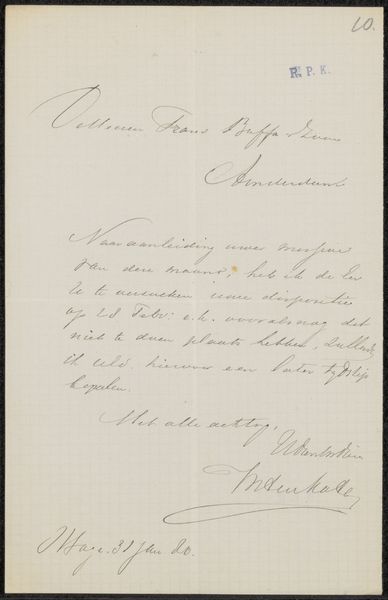 10.
R. P. K.
Frans Buffa & Zonen
Amsterdam
Naar aanleiding uwer missive
van dezer maand, heb ik de Eer
U te verzoeken uwe dispositie
op 28 Febr: e.k. voor alsnog
niet te doen plaats hebben, zullende
ik UEd. hiervoor een later tijdstip
bepalen.
Met alle achting,
's Hage. 31 Jan 80.